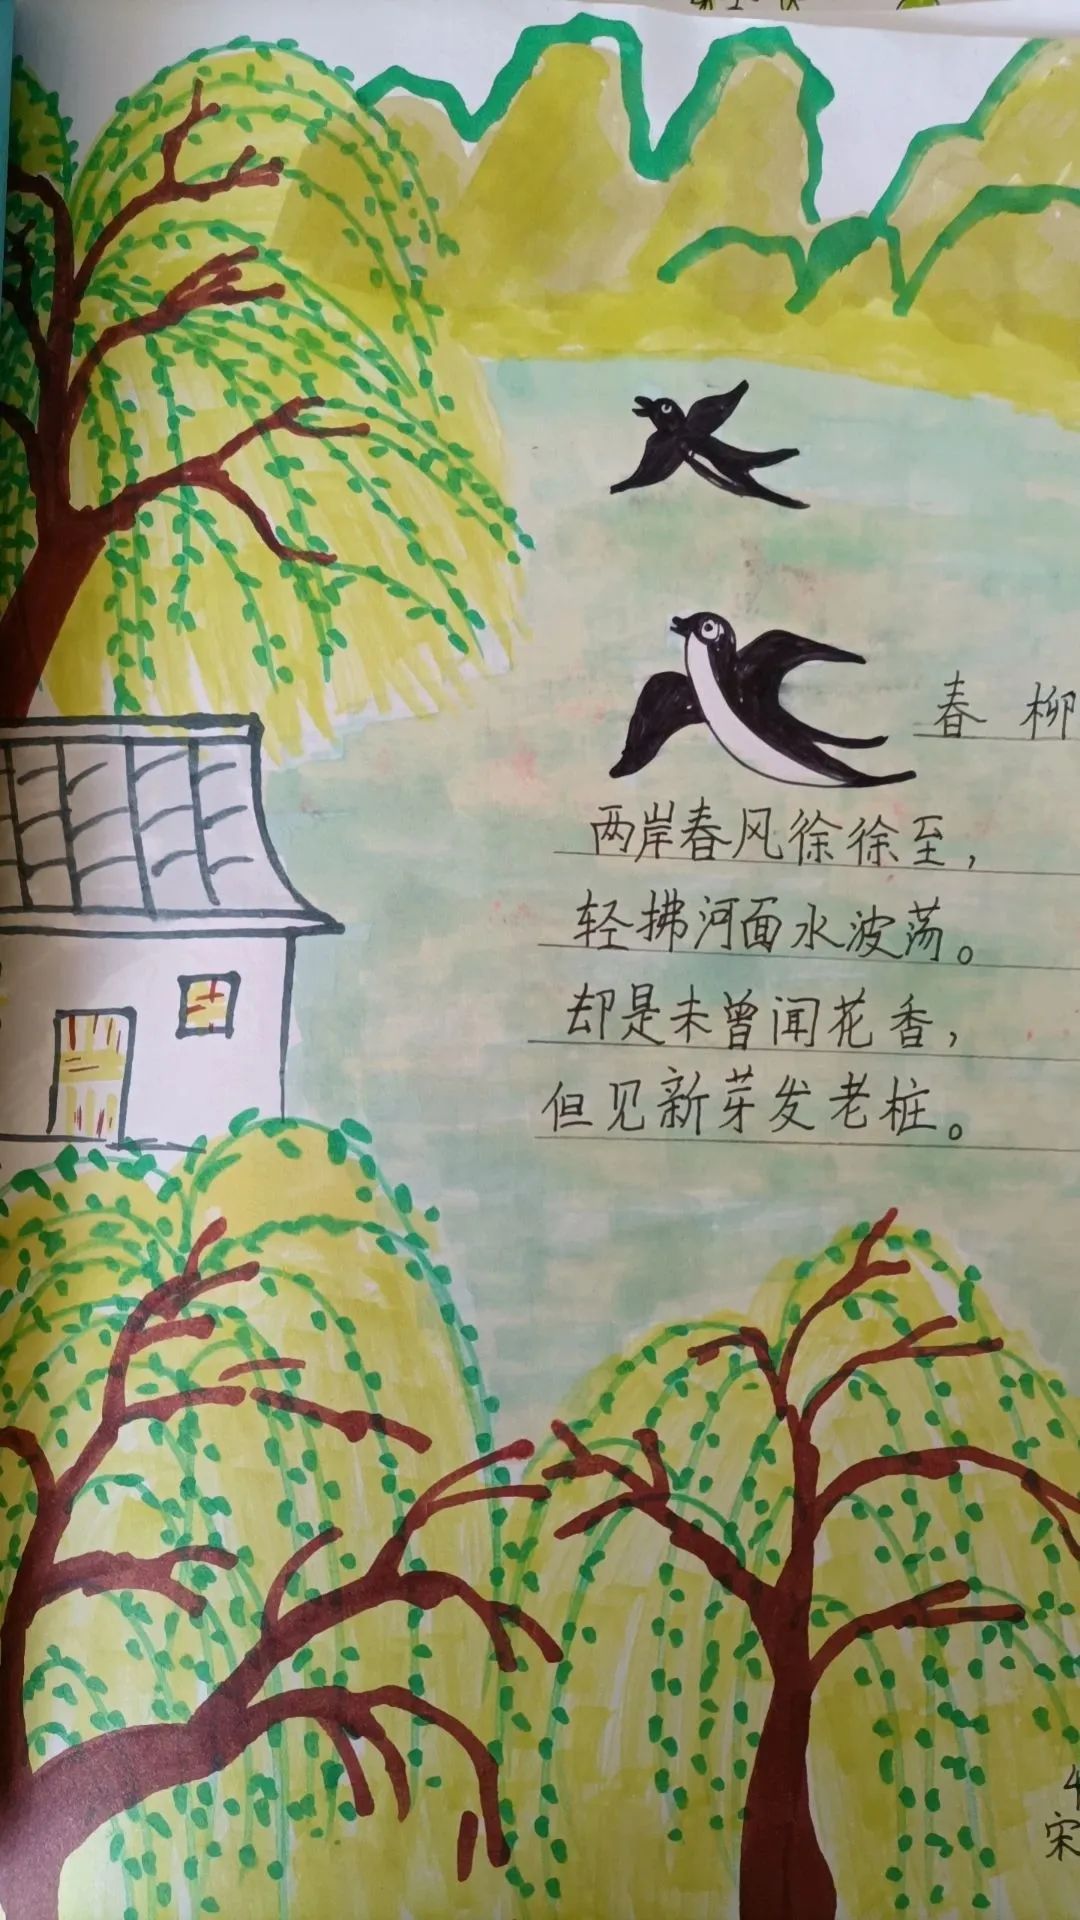 春 柳
两岸春风徐徐至，
轻拂河面水波荡。
却是未曾闻花香，
但见新芽发老桩。
宋